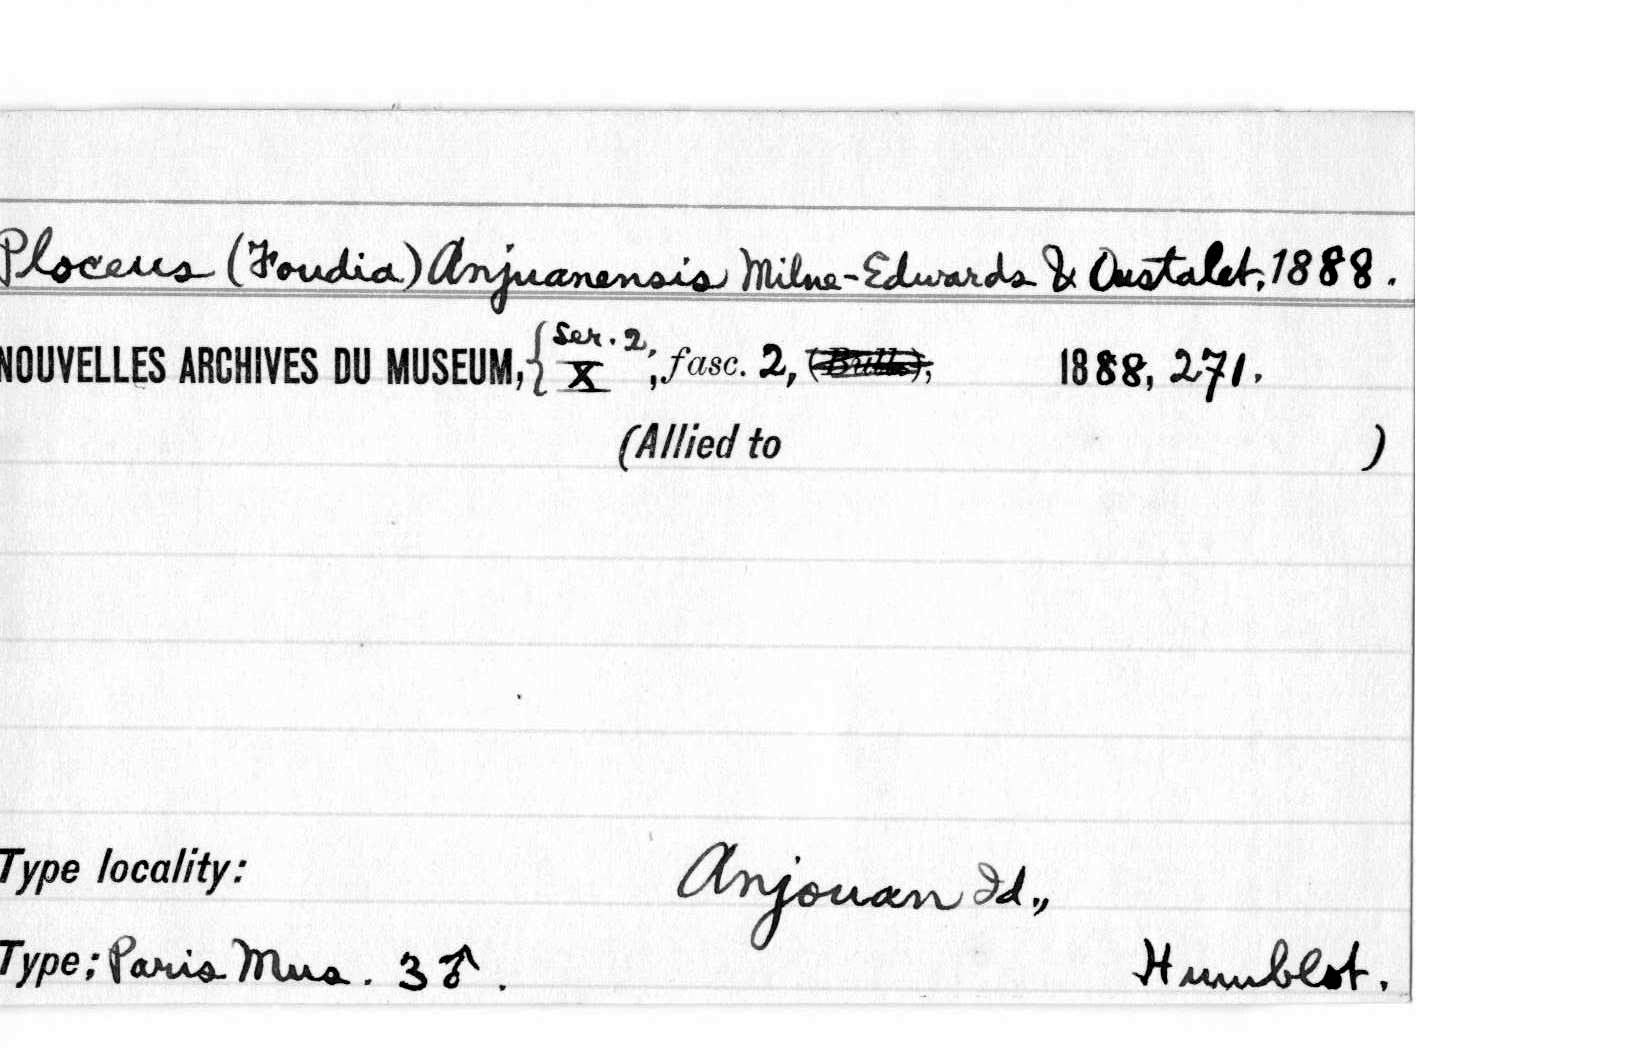 Ploceus (Foudia) Anjuanensis Milne-Edwards & Oustalet, 1888.
NOUVELLES ARCHIVES DU MUSEUM, { Ser. 2, X, fasc. 2, (Bull.), 1888, 271.
(Allied to )
Type locality: Anjouan Id.,
Type; Paris Mus. 3 ♂. Humblot.